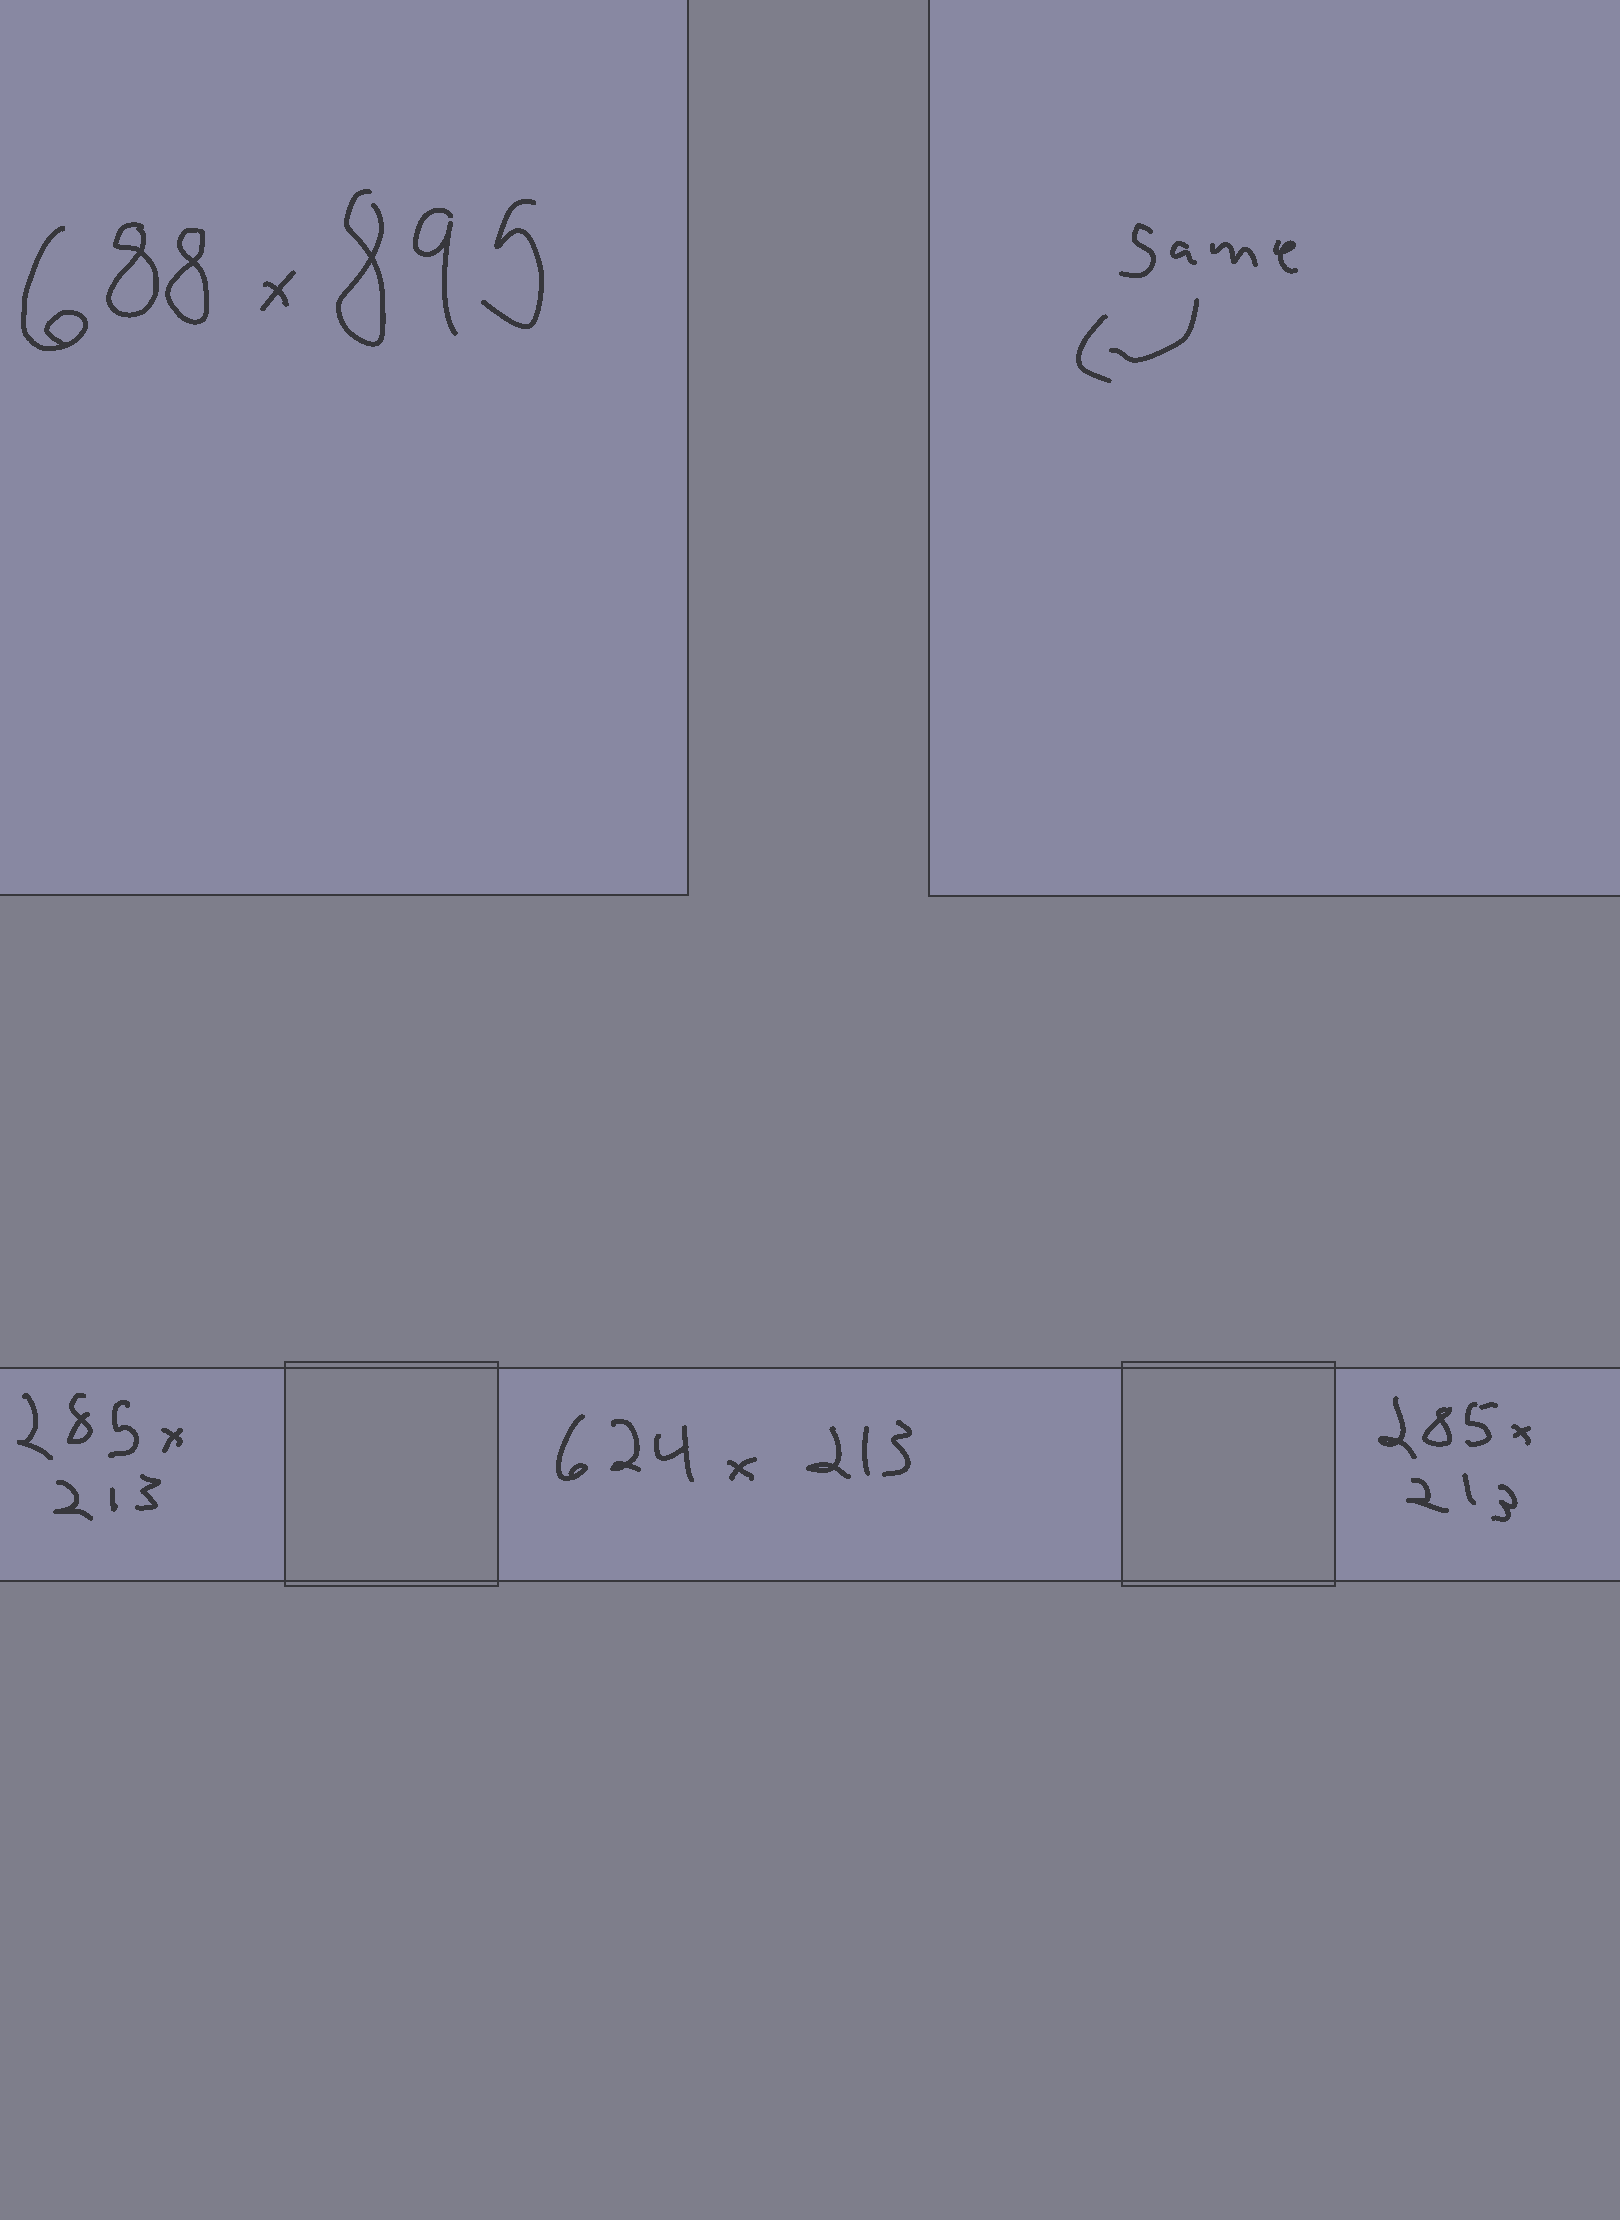 688 x 895
same
285 x
213
624 x 213
285 x
213